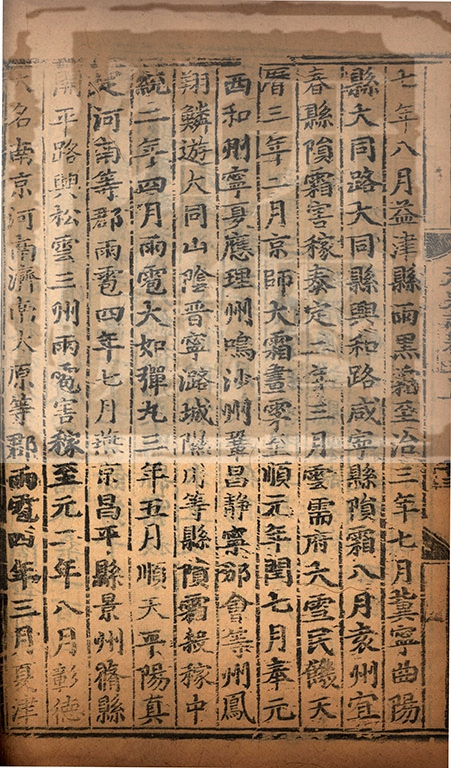 七年八月益津縣雨黑霜至治三年七月冀寧曲陽
縣大同路大同縣興和路咸寧縣隕霜八月袁州宜
春縣隕霜害稼泰定二年三月雲需府大雪民饑天
曆三年二月京師大霜晝雾至順元年閏七月奉元
西和州寧夏應理州鳴沙州鞏昌靜寧邠會等州鳳
翔麟遊大同山陰晉寧潞城隰川等縣隕霜殺稼中
統二年四月雨雹大如彈丸三年五月順天平陽真
定河南等郡雨雹四年七月燕京昌平縣景州蓨縣
開平路興松雲三州雨雹害稼至元二年八月彰德
大名南京河南濟南太原等郡雨雹四年三月夏津